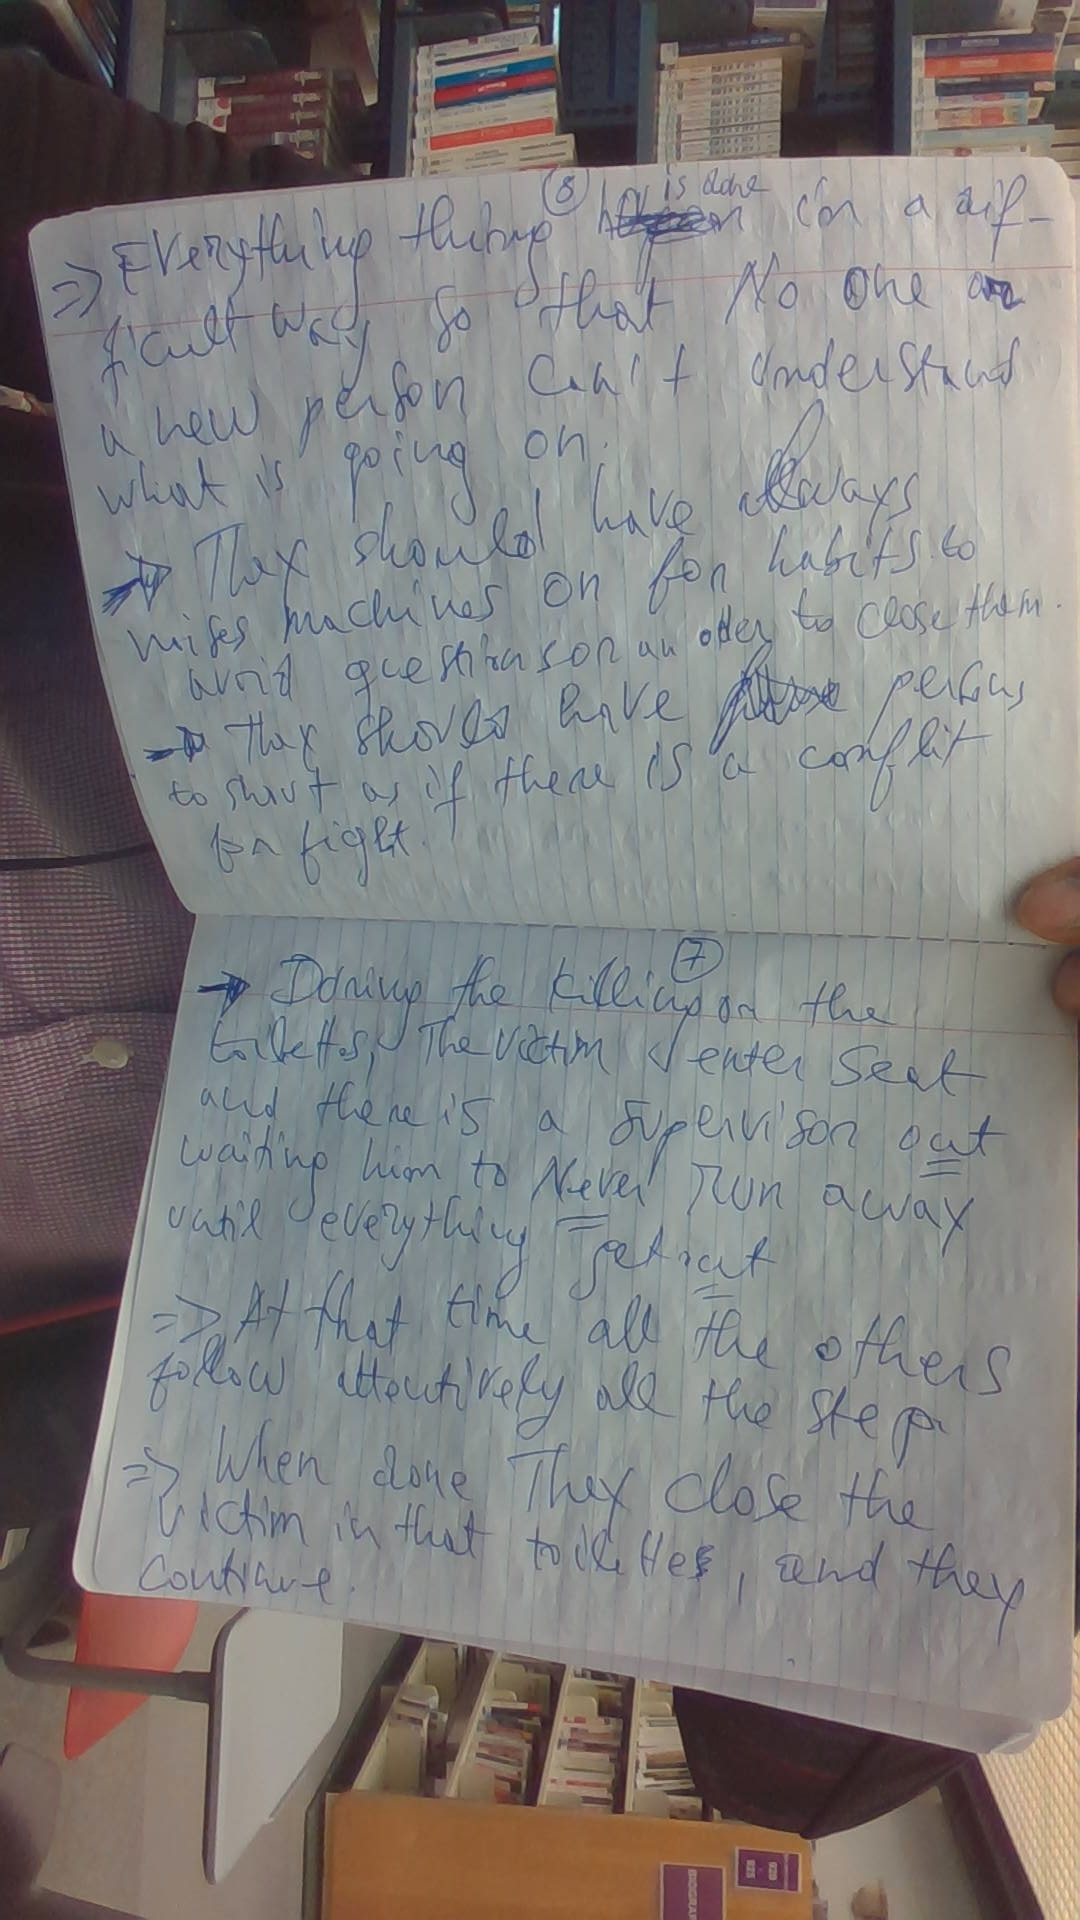 ⑧
⇒ Everything thing is done in a dif-
ficult way so that No one or
a new person can't understand
what is going on.
→ They should have always
mixes machines on for habits to
avoid questions on an oder to close them.
→ They should have persons
to shout as if there is a conflit
for fight.
⑦
→ During the killing on the
toilettes, The victim enter seat
and there is a supervisor out
waiting him to Never run away
until everything get out
⇒ At that time all the others
follow attentively all the step
⇒ When done They close the
victim in that toilettes, and they
continue.
BIOGRAP
920
925